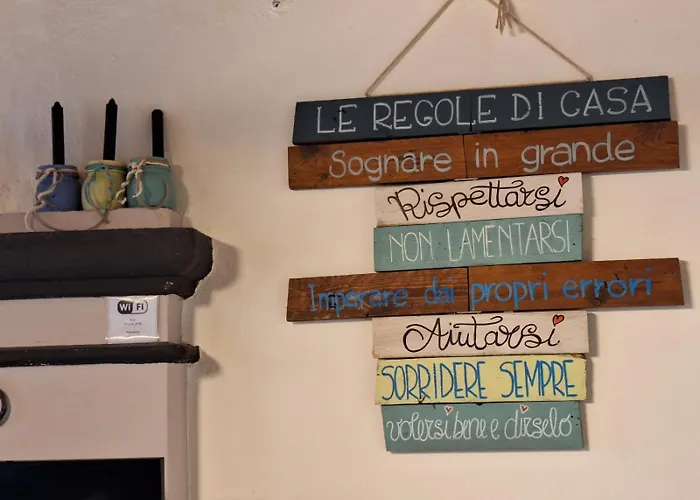 LE REGOLE DI CASA
Sognare in grande
Rispettarsi
NON LAMENTARSI
Imparare dai propri errori
Aiutarsi
SORRIDERE SEMPRE
volersi bene e dirselo
WiFi